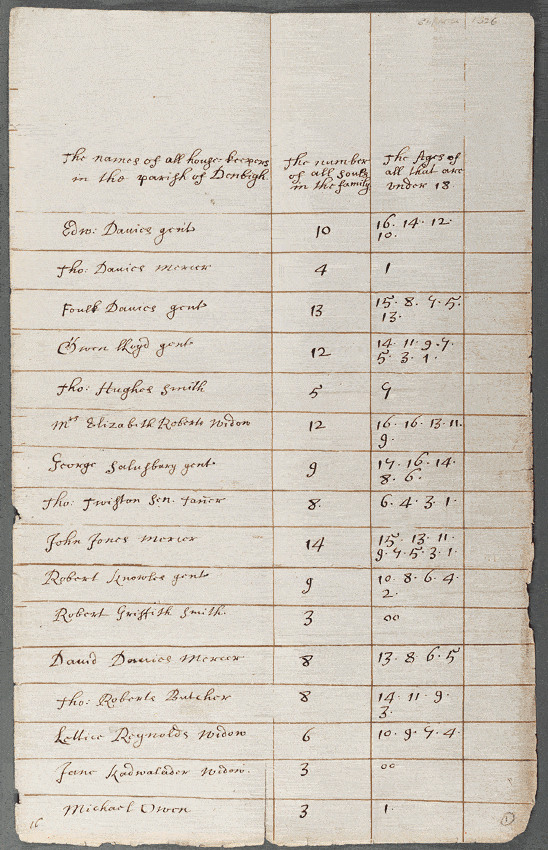 1326
The names of all house-keepers
in the parish of Denbigh
The number
of all Souls
in the family
The Ages of
all that are
vnder 18
Edw: Davies gent 10 16. 14. 12.
10.
Tho: Davies Mercer 4 1
Foulk Davies gent 13 15. 8. 7. 5.
13.
Owen lloyd gent 12 14. 11. 9. 7.
5. 3. 1.
Tho: Hughes Smith 5 9
Mrs Elizabeth Roberts Widow 12 16. 16. 13. 11.
9.
George Salusbury gent 9 17. 16. 14.
8. 6.
Tho: Twiston Sen. Taner 8. 6. 4. 3. 1.
John Jones Mercer 14 15. 13. 11.
9. 7. 5. 3. 1.
Robert Knowles gent 9 10. 8. 6. 4.
2.
Robert Griffith Smith. 3 00
David Davies Mercer 8 13. 8. 6. 5
Tho: Roberts Butcher 8 14. 11. 9.
3.
Lettice Reynolds Widow 6 10. 9. 7. 4.
Jane Kadwalader Widow. 3 00
Michael Owen 3 1.
16
1